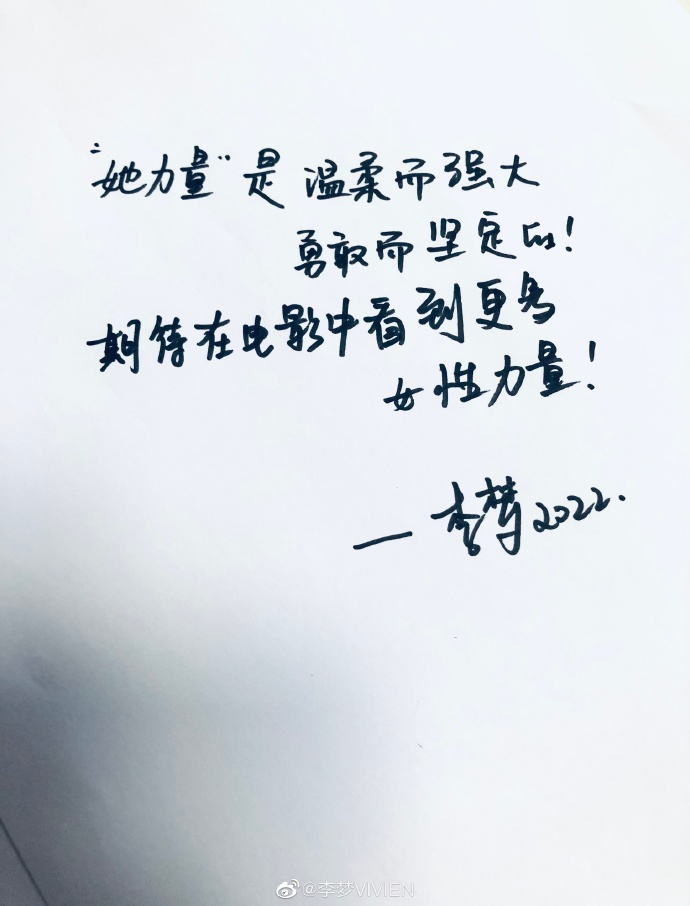 “她力量”是 温柔而强大
勇敢而坚定的!
期待在电影中看到更多
女性力量!
— 李梦2022.
@李梦VIVIEN